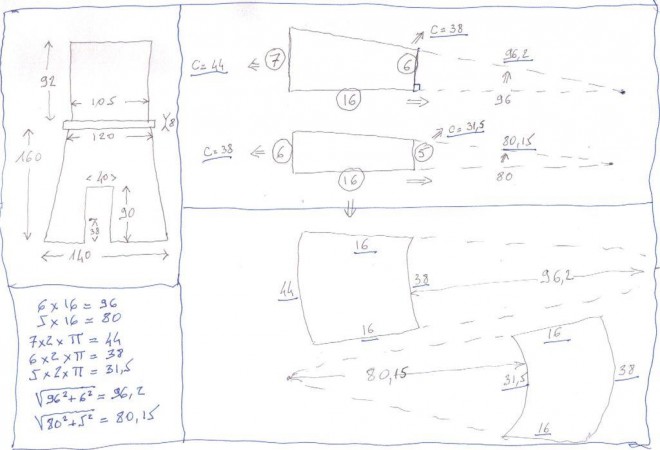 92
105
8
120
160
40
38
90
140
6 x 16 = 96
5 x 16 = 80
7 x 2 x π = 44
6 x 2 x π = 38
5 x 2 x π = 31,5
√96²+6² = 96,2
√80²+5² = 80,15
C = 38
C = 44
7
6
96,2
16
96
C = 31,5
C = 38
6
5
80,15
16
80
16
44
38
96,2
16
16
80,15
31,5
38
16